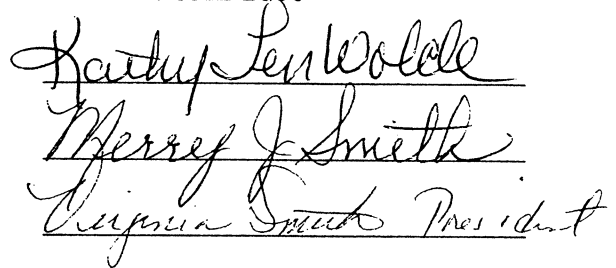 Kathy TenWolde
Merrey J Smith
Virginia Smith President